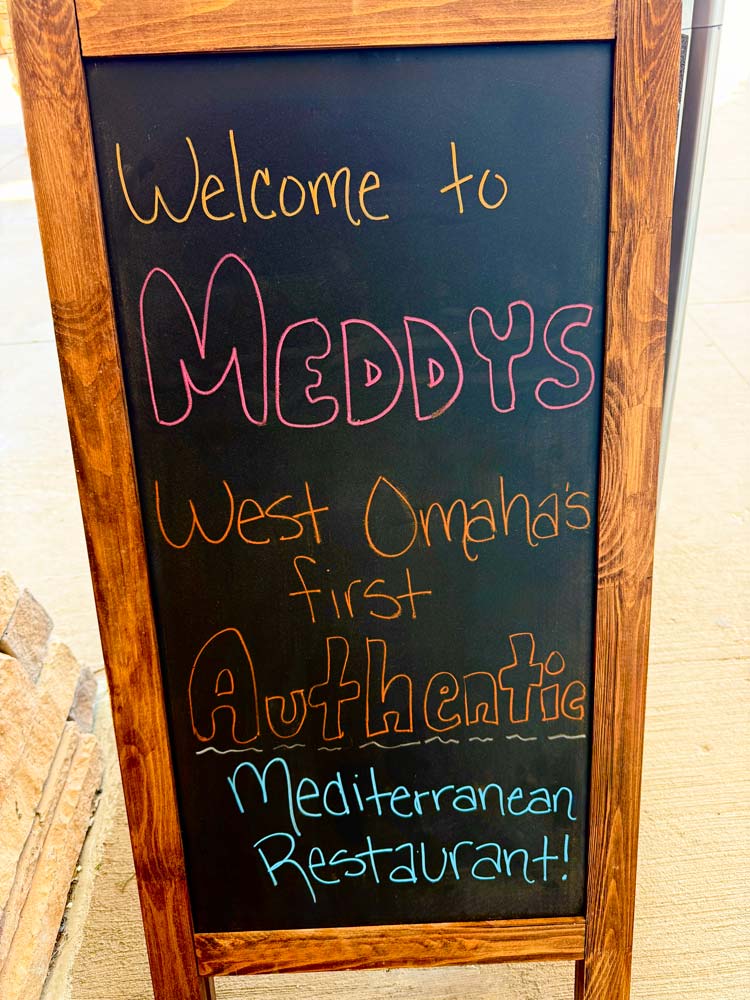 Welcome to
MEDDYS
West Omaha's
first
Authentic
Mediterranean
Restaurant!